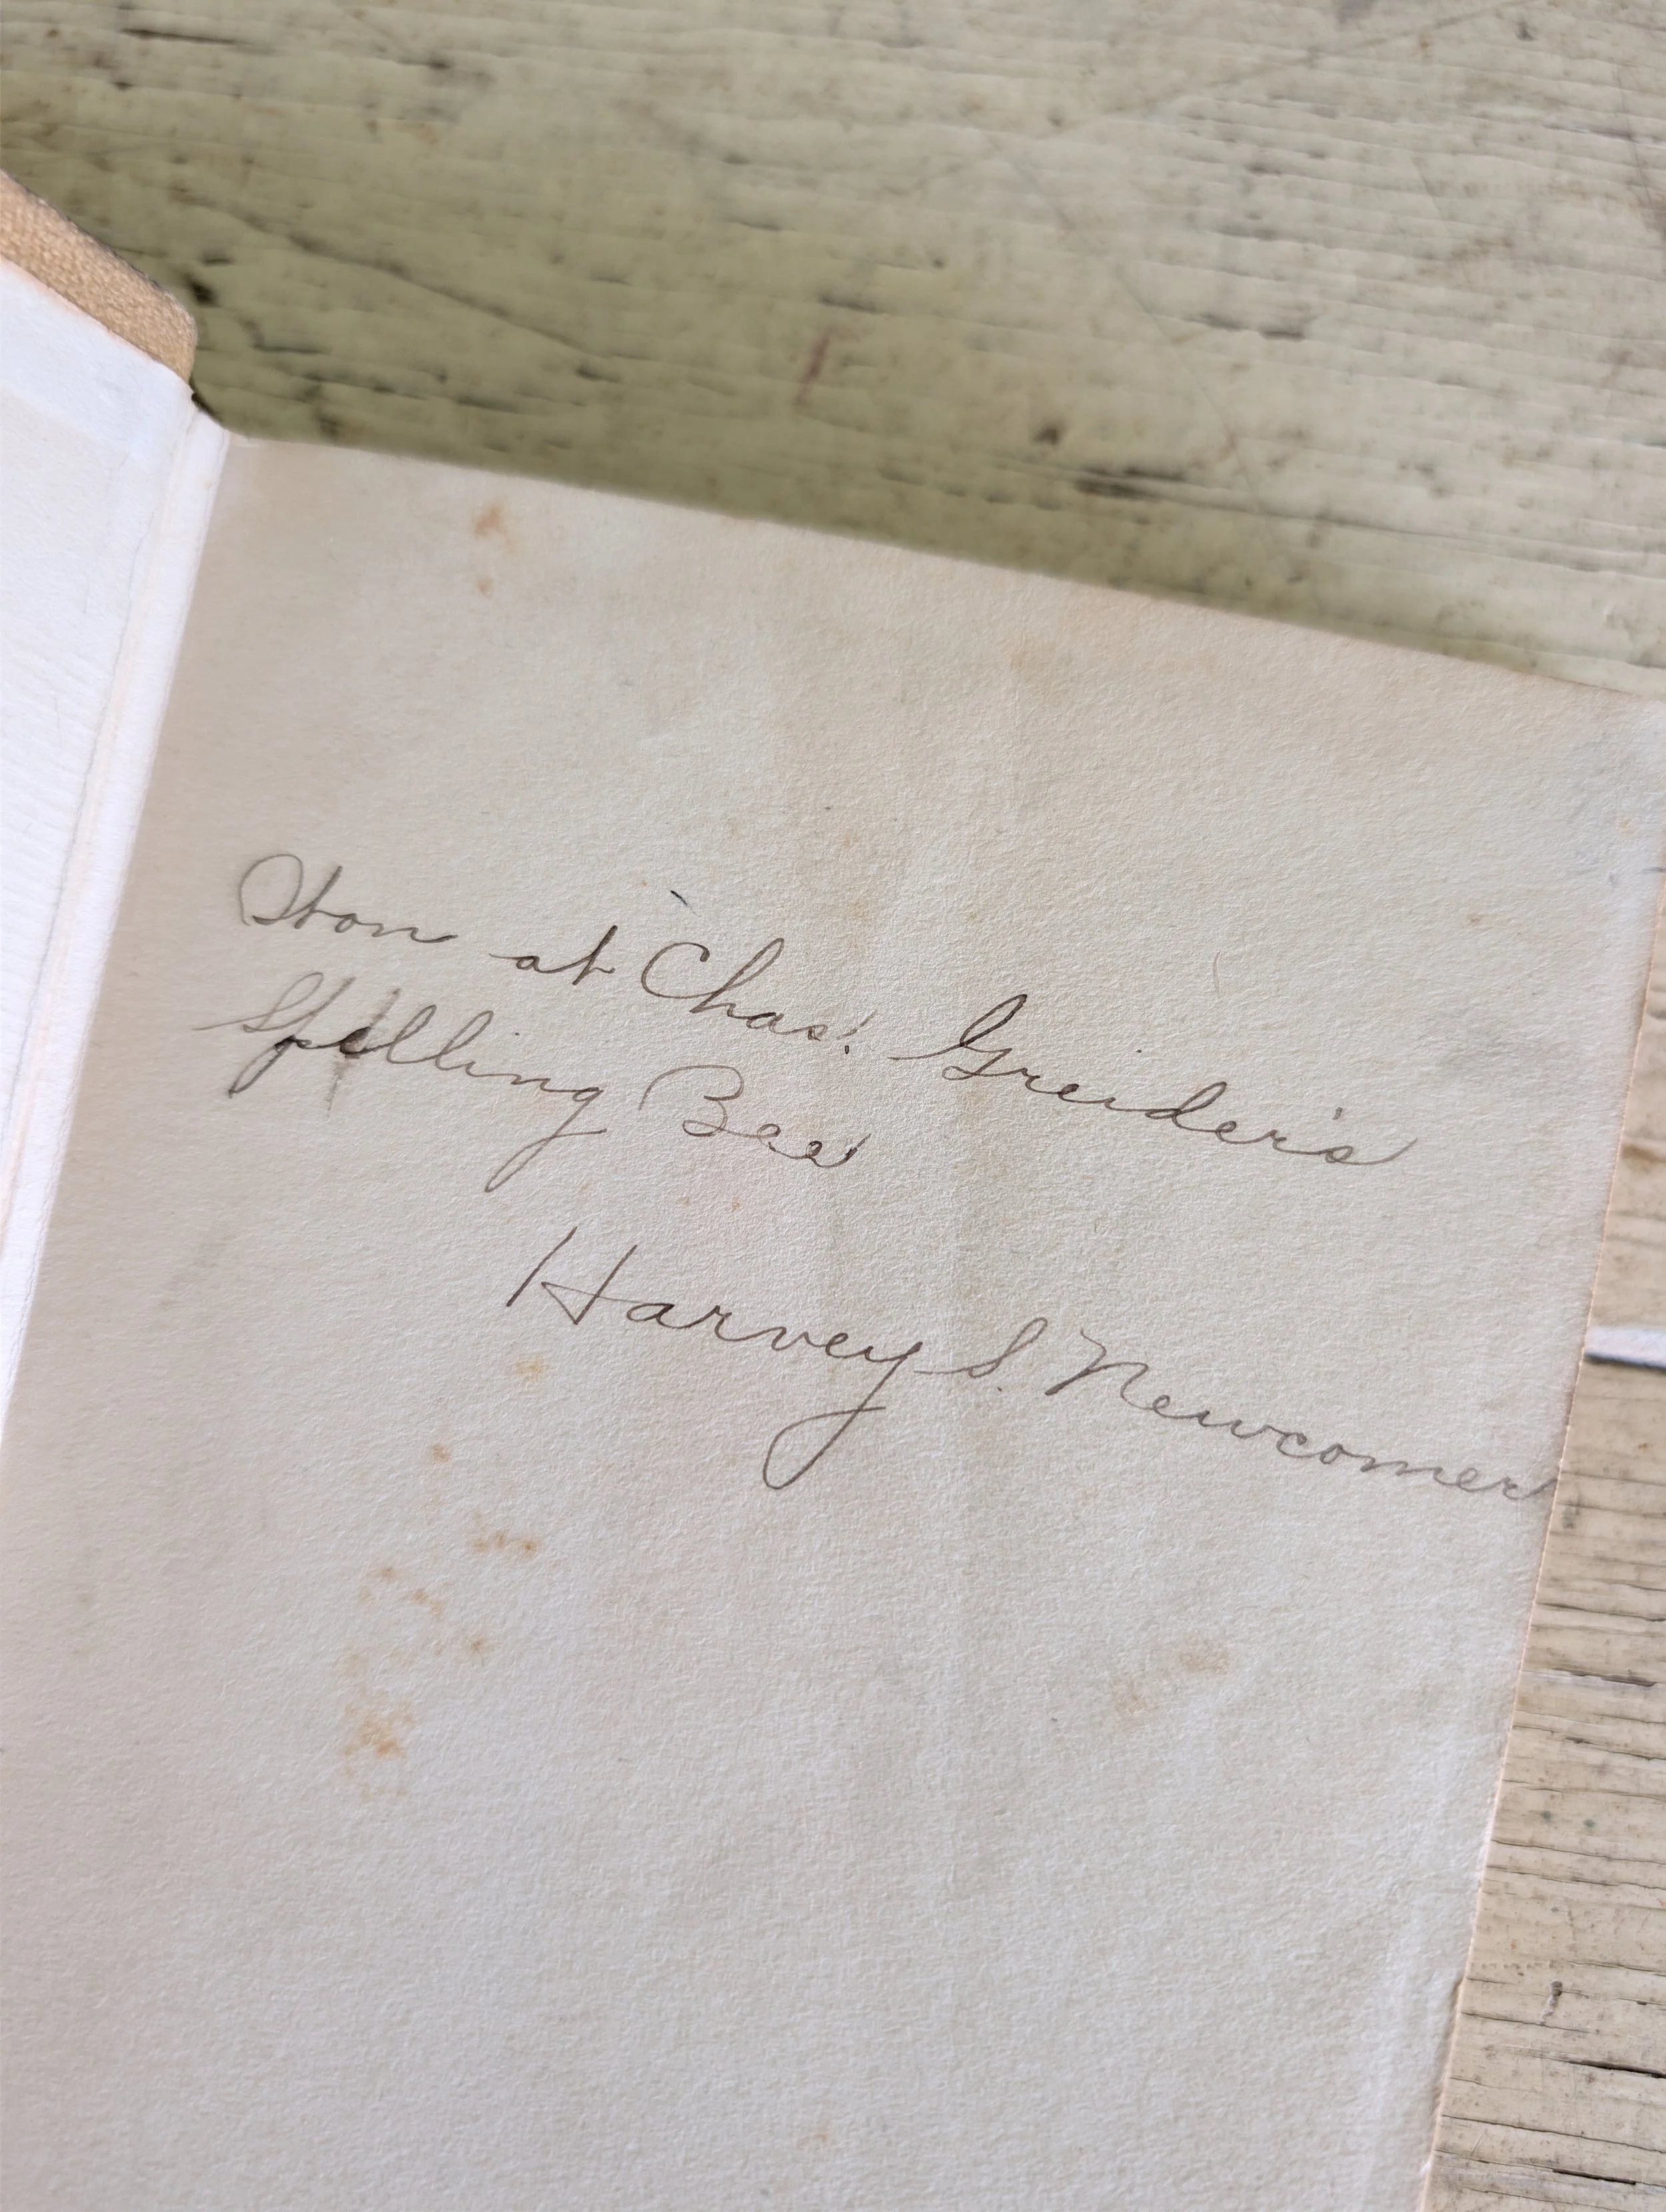 Won at Chas. Greider's
Spelling Bee
Harvey S. Newcomer